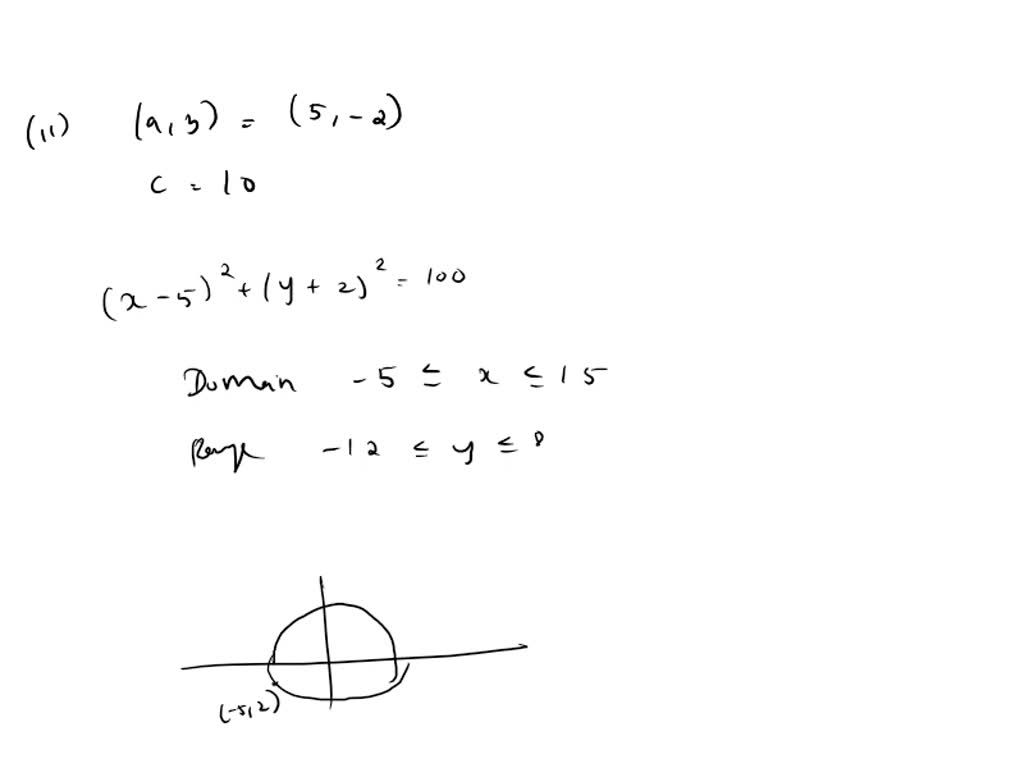 (ii) (a, b) = (5, -2)
c = 10
(x - 5)² + (y + 2)² = 100
Domain -5 ≤ x ≤ 15
Range -12 ≤ y ≤ 8
(-5, 2)